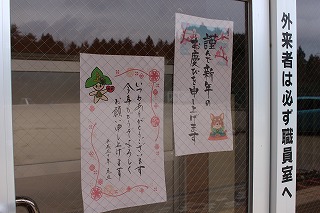 外来者は必ず職員室へ
謹んで新年の
お慶びを申し上げます
いつもありがとうございます
今年もどうぞよろしく
お願い申し上げます